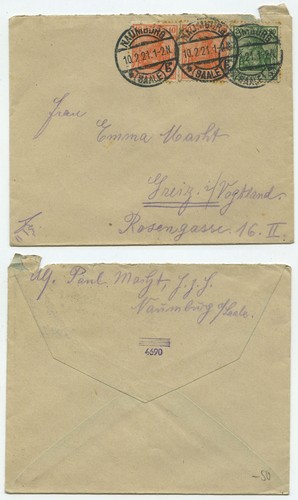 NAUMBURG
10.2.21.1-2N
*(SAALE)
NAUMBURG
10.2.21.1-
*(SAALE)
10
(SAALE)
Frau
Emma Macht
Greiz i/Vogtland.
Rosengasse 16. II.
Abs. Paul Macht, z.Z.
Naumburg /Saale.
4690
-50